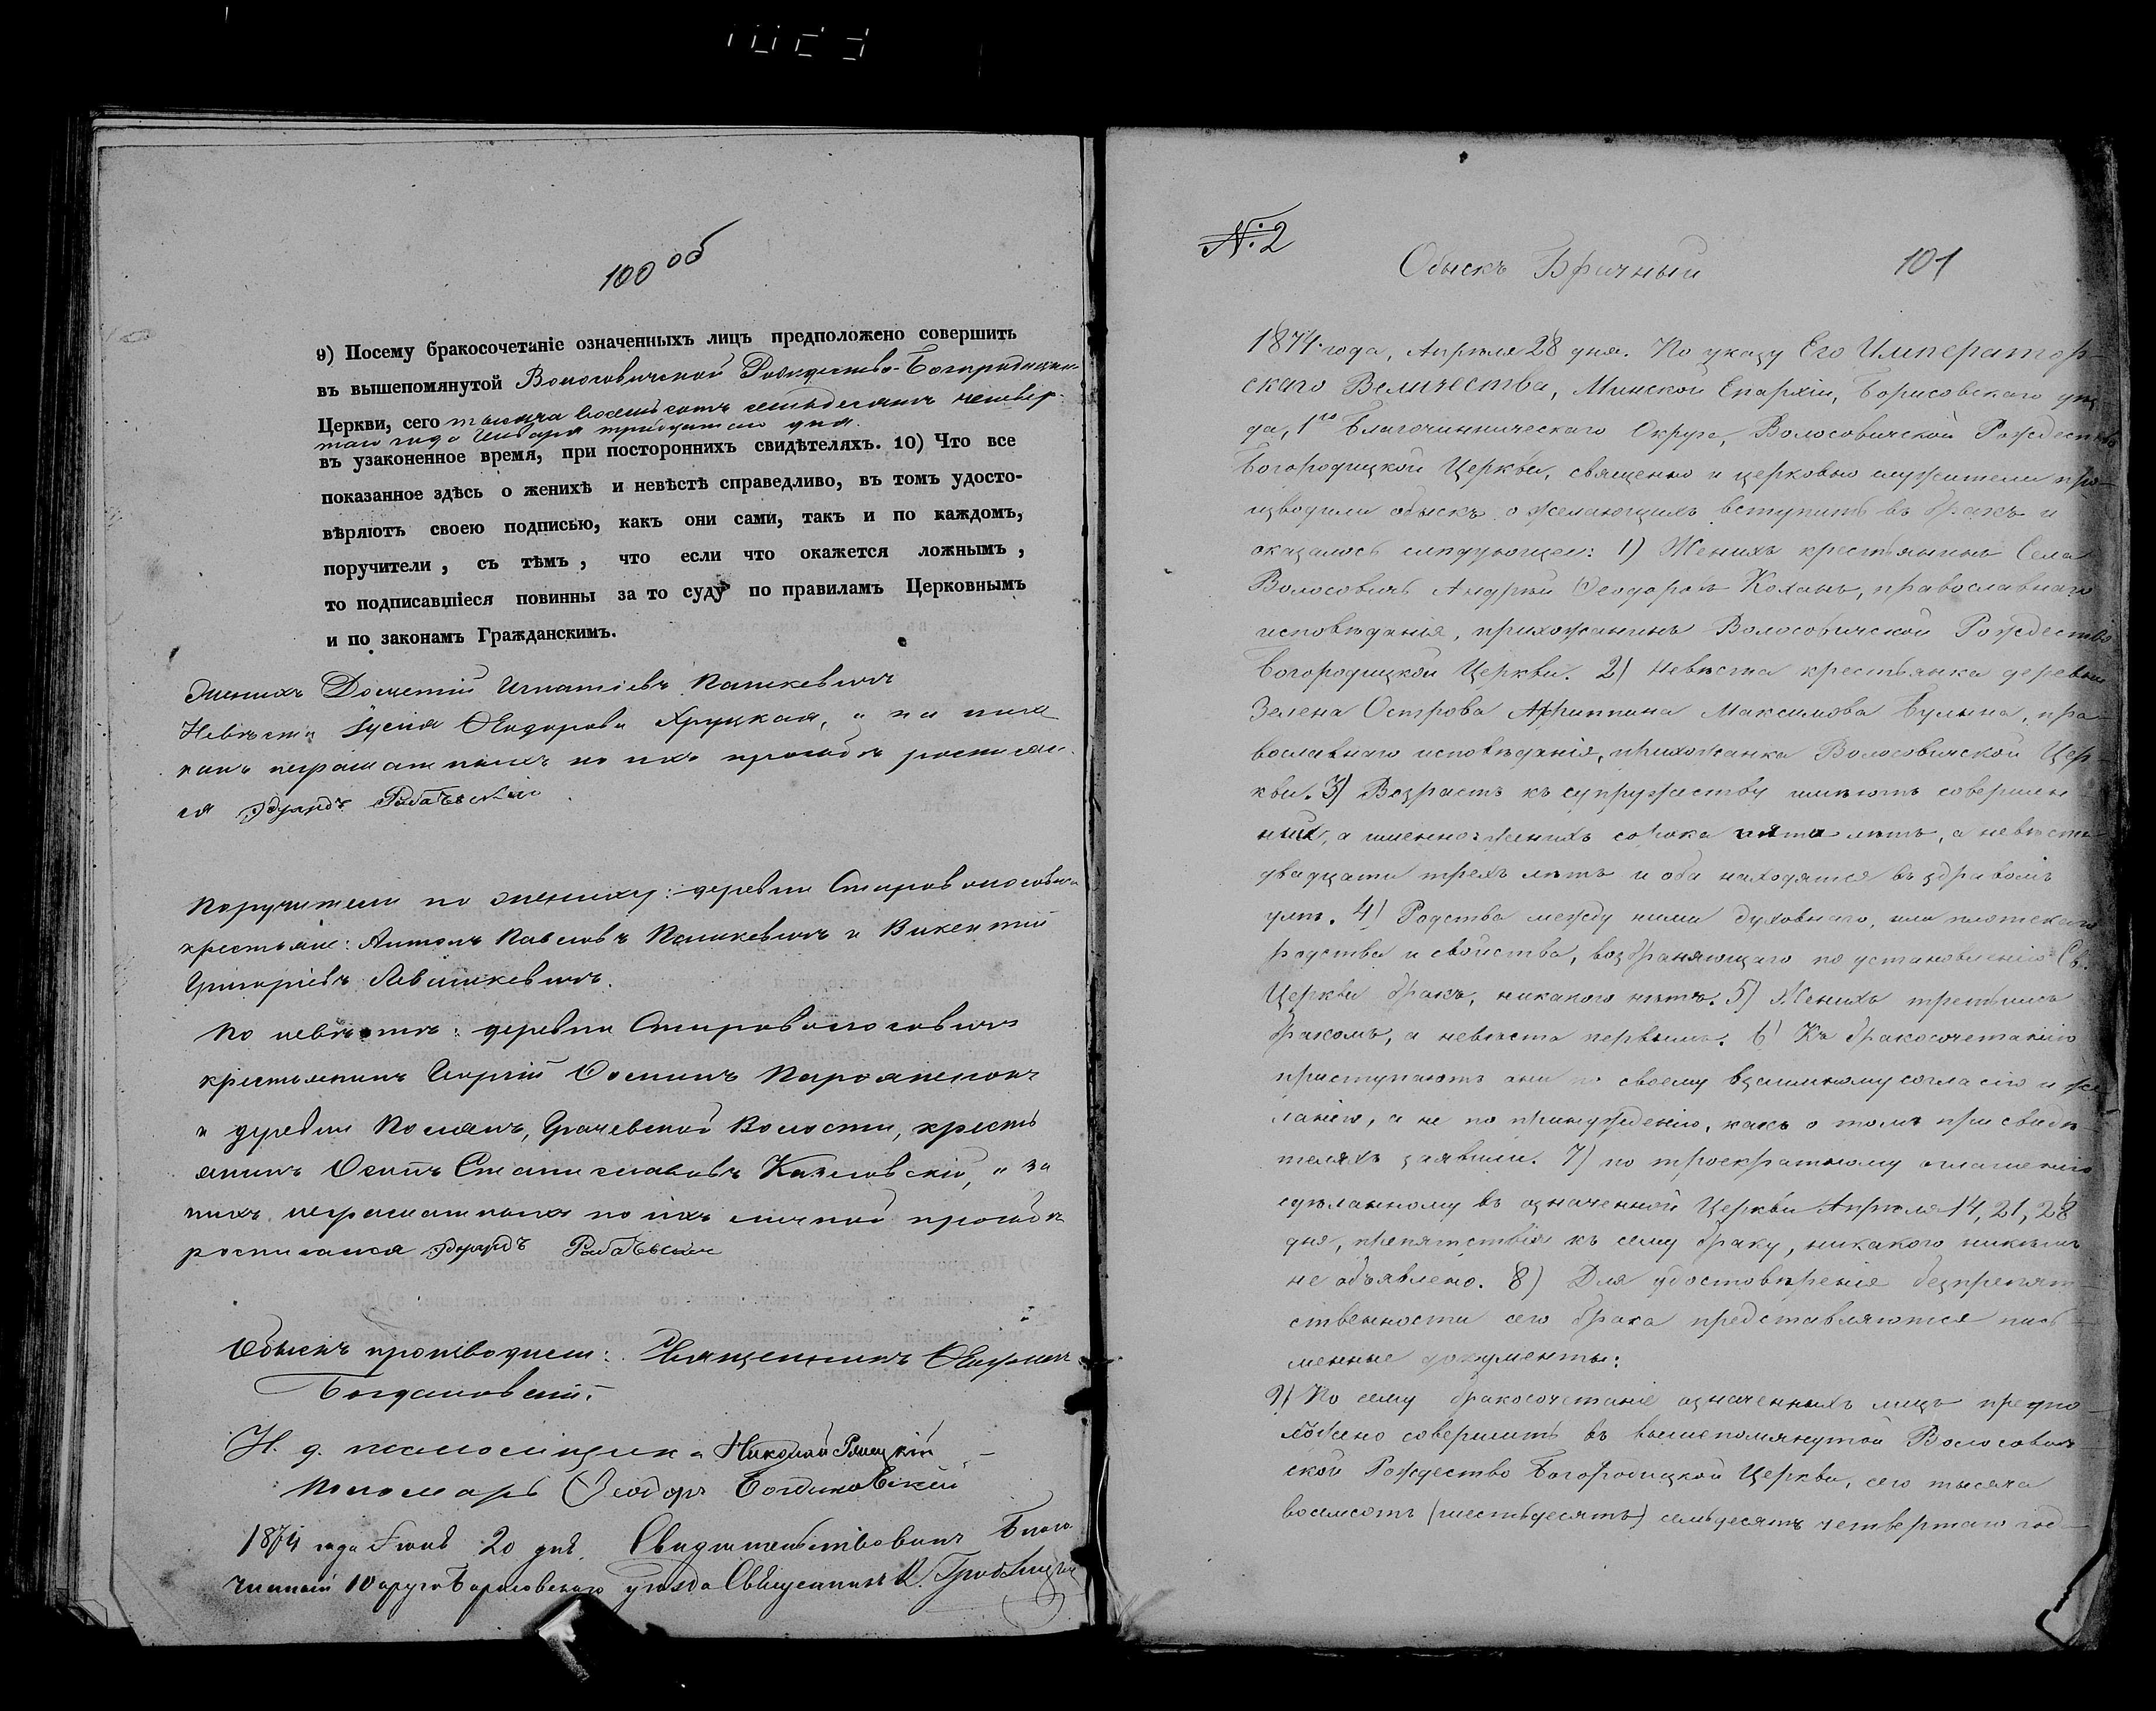 100 об
9) Посему бракосочетаніе означенныхъ лицъ предположено совершить
въ вышепомянутой Волосовичской Рождество-Богородицкой
Церкви, сего тысяча восемьсотъ семьдесятъ четвер-
таго года Января тридцатаго дня.
въ узаконенное время, при постороннихъ свидѣтеляхъ. 10) Что все
показанное здѣсь о женихѣ и невѣстѣ справедливо, въ томъ удосто-
вѣряютъ своею подписью, какъ они сами, такъ и по каждомъ,
поручители, съ тѣмъ, что если что окажется ложнымъ,
то подписавшіеся повинны за то суду по правиламъ Церковнымъ
и по законамъ Гражданскимъ.
Женихъ Дометій Игнатіевъ Пашкевичъ
Невѣста Іустія Ѳеодорова Хруцкая, а за
неграматныхъ по ихъ прозьбѣ росписал-
ся Эдуардъ
Поручители по жениху: деревни Староволосовичъ
крестьяне: Антонъ Павловъ Пашкевичъ и Викентій
Григорьевъ Левашкевичъ.
По невѣстѣ: деревни Староволосовичъ
крестьянинъ Осиповъ
и деревни Волости, кресть
янинъ Осипъ Станиславовъ Козловскій, а за
нихъ неграматныхъ по ихъ личной прозьбѣ
росписался Эдуардъ
Обыскъ производили: Священникъ
Богдановскій.
И. д. псаломщика Николай
Пономарь Ѳеодоръ Богдановскій
1874 года Іюня 20 дня. Свидѣтельствовалъ Благо
чинный 1 округа Борисовскаго уѣзда Священникъ
№ 2
Обыскъ Брачный
101
1874 года, Апрѣля 28 дня. По указу Его Император-
скаго Величества, Минской Епархіи, Борисовскаго уѣз
да, 1го Благочинническаго Округа, Волосовичской Рождество
Богородицкой Церкви, священно и церковно служители про-
изводили обыскъ о желающихъ вступить въ бракъ и
оказалось слѣдующее: 1) Женихъ крестьянинъ Села
Волосовичъ Андрей Ѳеодоровъ Коханъ, православнаго
исповѣданія, прихожанинъ Волосовичской Рождество
Богородицкой Церкви. 2) Невѣста крестьянка деревни
Зелена Острова Агриппина Максимова Булына, пра-
вославнаго исповѣданія, прихожанка Волосовичской Цер-
кви. 3) Возрастъ къ супружеству имѣютъ совершен
ный, а именно: женихъ сорока пяти лѣтъ, а невѣста
двадцати трехъ лѣтъ и оба находятся въ здравомъ
умѣ. 4) Родства между ними духовнаго, или плотскаго
родства и свойства, возбраняющаго по установленію Св.
Церкви бракъ, никакого нѣтъ. 5) Женихъ третьимъ
бракомъ, а невѣста первымъ. 6) Къ бракосочетанію
приступаютъ они по своему взаимному согласію и же
ланію, а не по принужденію, какъ о томъ при свидѣ-
теляхъ заявили. 7) по троекратному оглашенію
сдѣланному въ означенной Церкви Апрѣля 14, 21, 28
дня, препятствія къ сему браку, никакого никѣмъ
не объявлено. 8) Для удостовѣренія безпрепят-
ственности сего брака представляются пись-
менные документы:
9) По сему бракосочетаніе означенныхъ лицъ предпо-
ложено совершить въ вышепомянутой Волосович-
ской Рождество Богородицкой Церкви, сего тысяча
восемсотъ (шестьдесятъ) семьдесятъ четвертаго год-